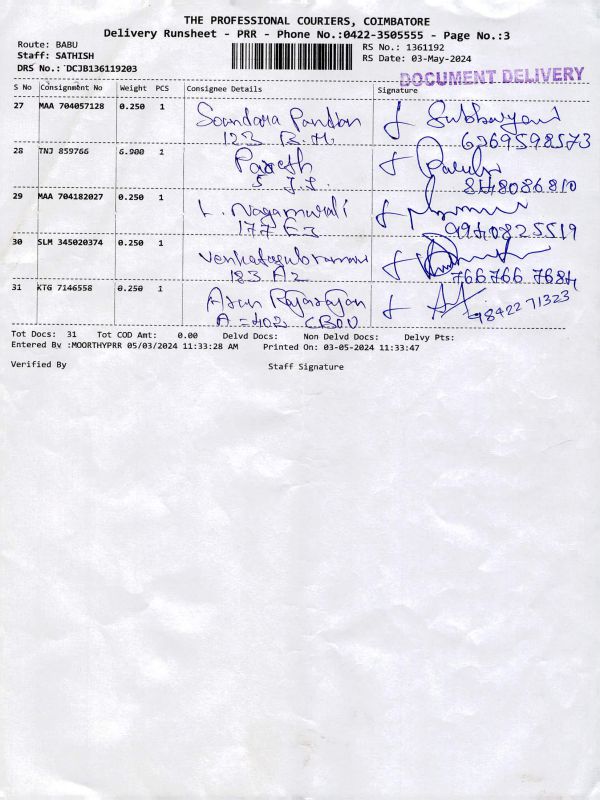 THE PROFESSIONAL COURIERS, COIMBATORE
Delivery Runsheet - PRR - Phone No.:0422-3505555 - Page No.:3
Route: BABU
Staff: SATHISH
DRS No.: DCJB136119203
RS No.: 1361192
RS Date: 03-May-2024
DOCUMENT DELIVERY
S No Consignment No Weight PCS Consignee Details Signature
27 MAA 704057128 0.250 1 Soundara Pandian
123 B.M.
6269598573
28 TNJ 859766 6.900 1 Paresh
5 J.L.
8148086810
29 MAA 704182027 0.250 1 L. Nagamurali
177 E3
9940825519
30 SLM 345020374 0.250 1 Venkatasubramani
183 A2
766 766 7684
31 KTG 7146558 0.250 1 Arun Rajarajan
A-402 CBOU
9842271323
Tot Docs: 31 Tot COD Amt: 0.00 Delvd Docs: Non Delvd Docs: Delvy Pts:
Entered By :MOORTHYPRR 05/03/2024 11:33:28 AM Printed On: 03-05-2024 11:33:47
Verified By Staff Signature